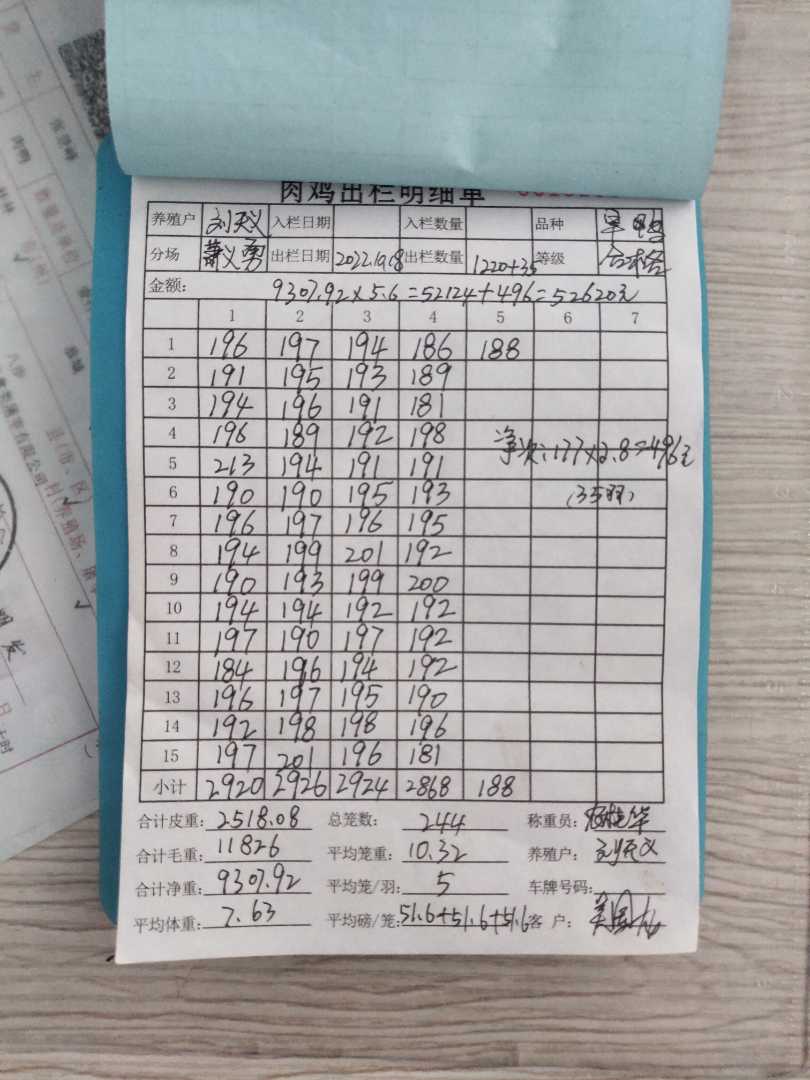 肉鸡出栏明细单
养殖户 刘天义 入栏日期 入栏数量 品种
分场 萧义勇 出栏日期 2022.10.18 出栏数量 1220+35 等级 合味香
金额: 9307.92×5.6=52124+496=52620元
1 2 3 4 5 6 7
1 196 197 194 186 188
2 191 195 193 189
3 194 196 191 181
4 196 189 192 198 净次:177×2.8=496元
5 213 194 191 191
6 190 190 195 193 (35羽)
7 196 197 196 195
8 194 199 201 192
9 190 193 199 200
10 194 194 192 192
11 197 190 197 192
12 184 196 194 192
13 196 197 195 190
14 192 198 198 196
15 197 201 196 181
小计 2920 2926 2924 2868 188
合计皮重: 2518.08 总笼数: 244 称重员:
合计毛重: 11826 平均笼重: 10.32 养殖户: 刘天义
合计净重: 9307.92 平均笼/羽: 5 车牌号码:
平均体重: 7.63 平均磅/笼: 51.6+51.6+51.6 客 户: